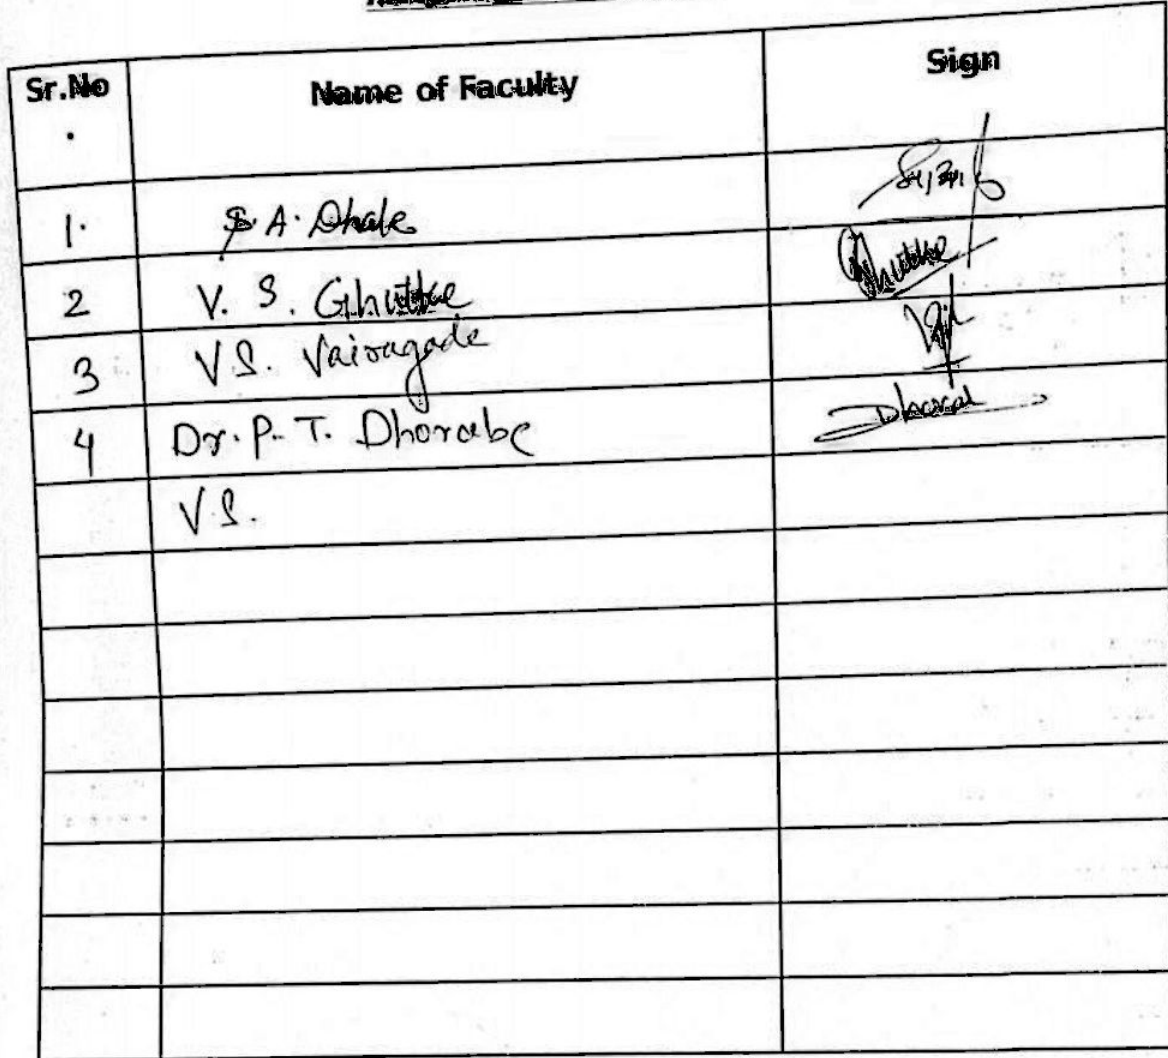 Sr.No Name of Faculty Sign
.
1. S. A. Dhale
2 V. S. Ghuttke
3 V.S. Vairagade
4 Dr. P. T. Dhorabe
V.S.